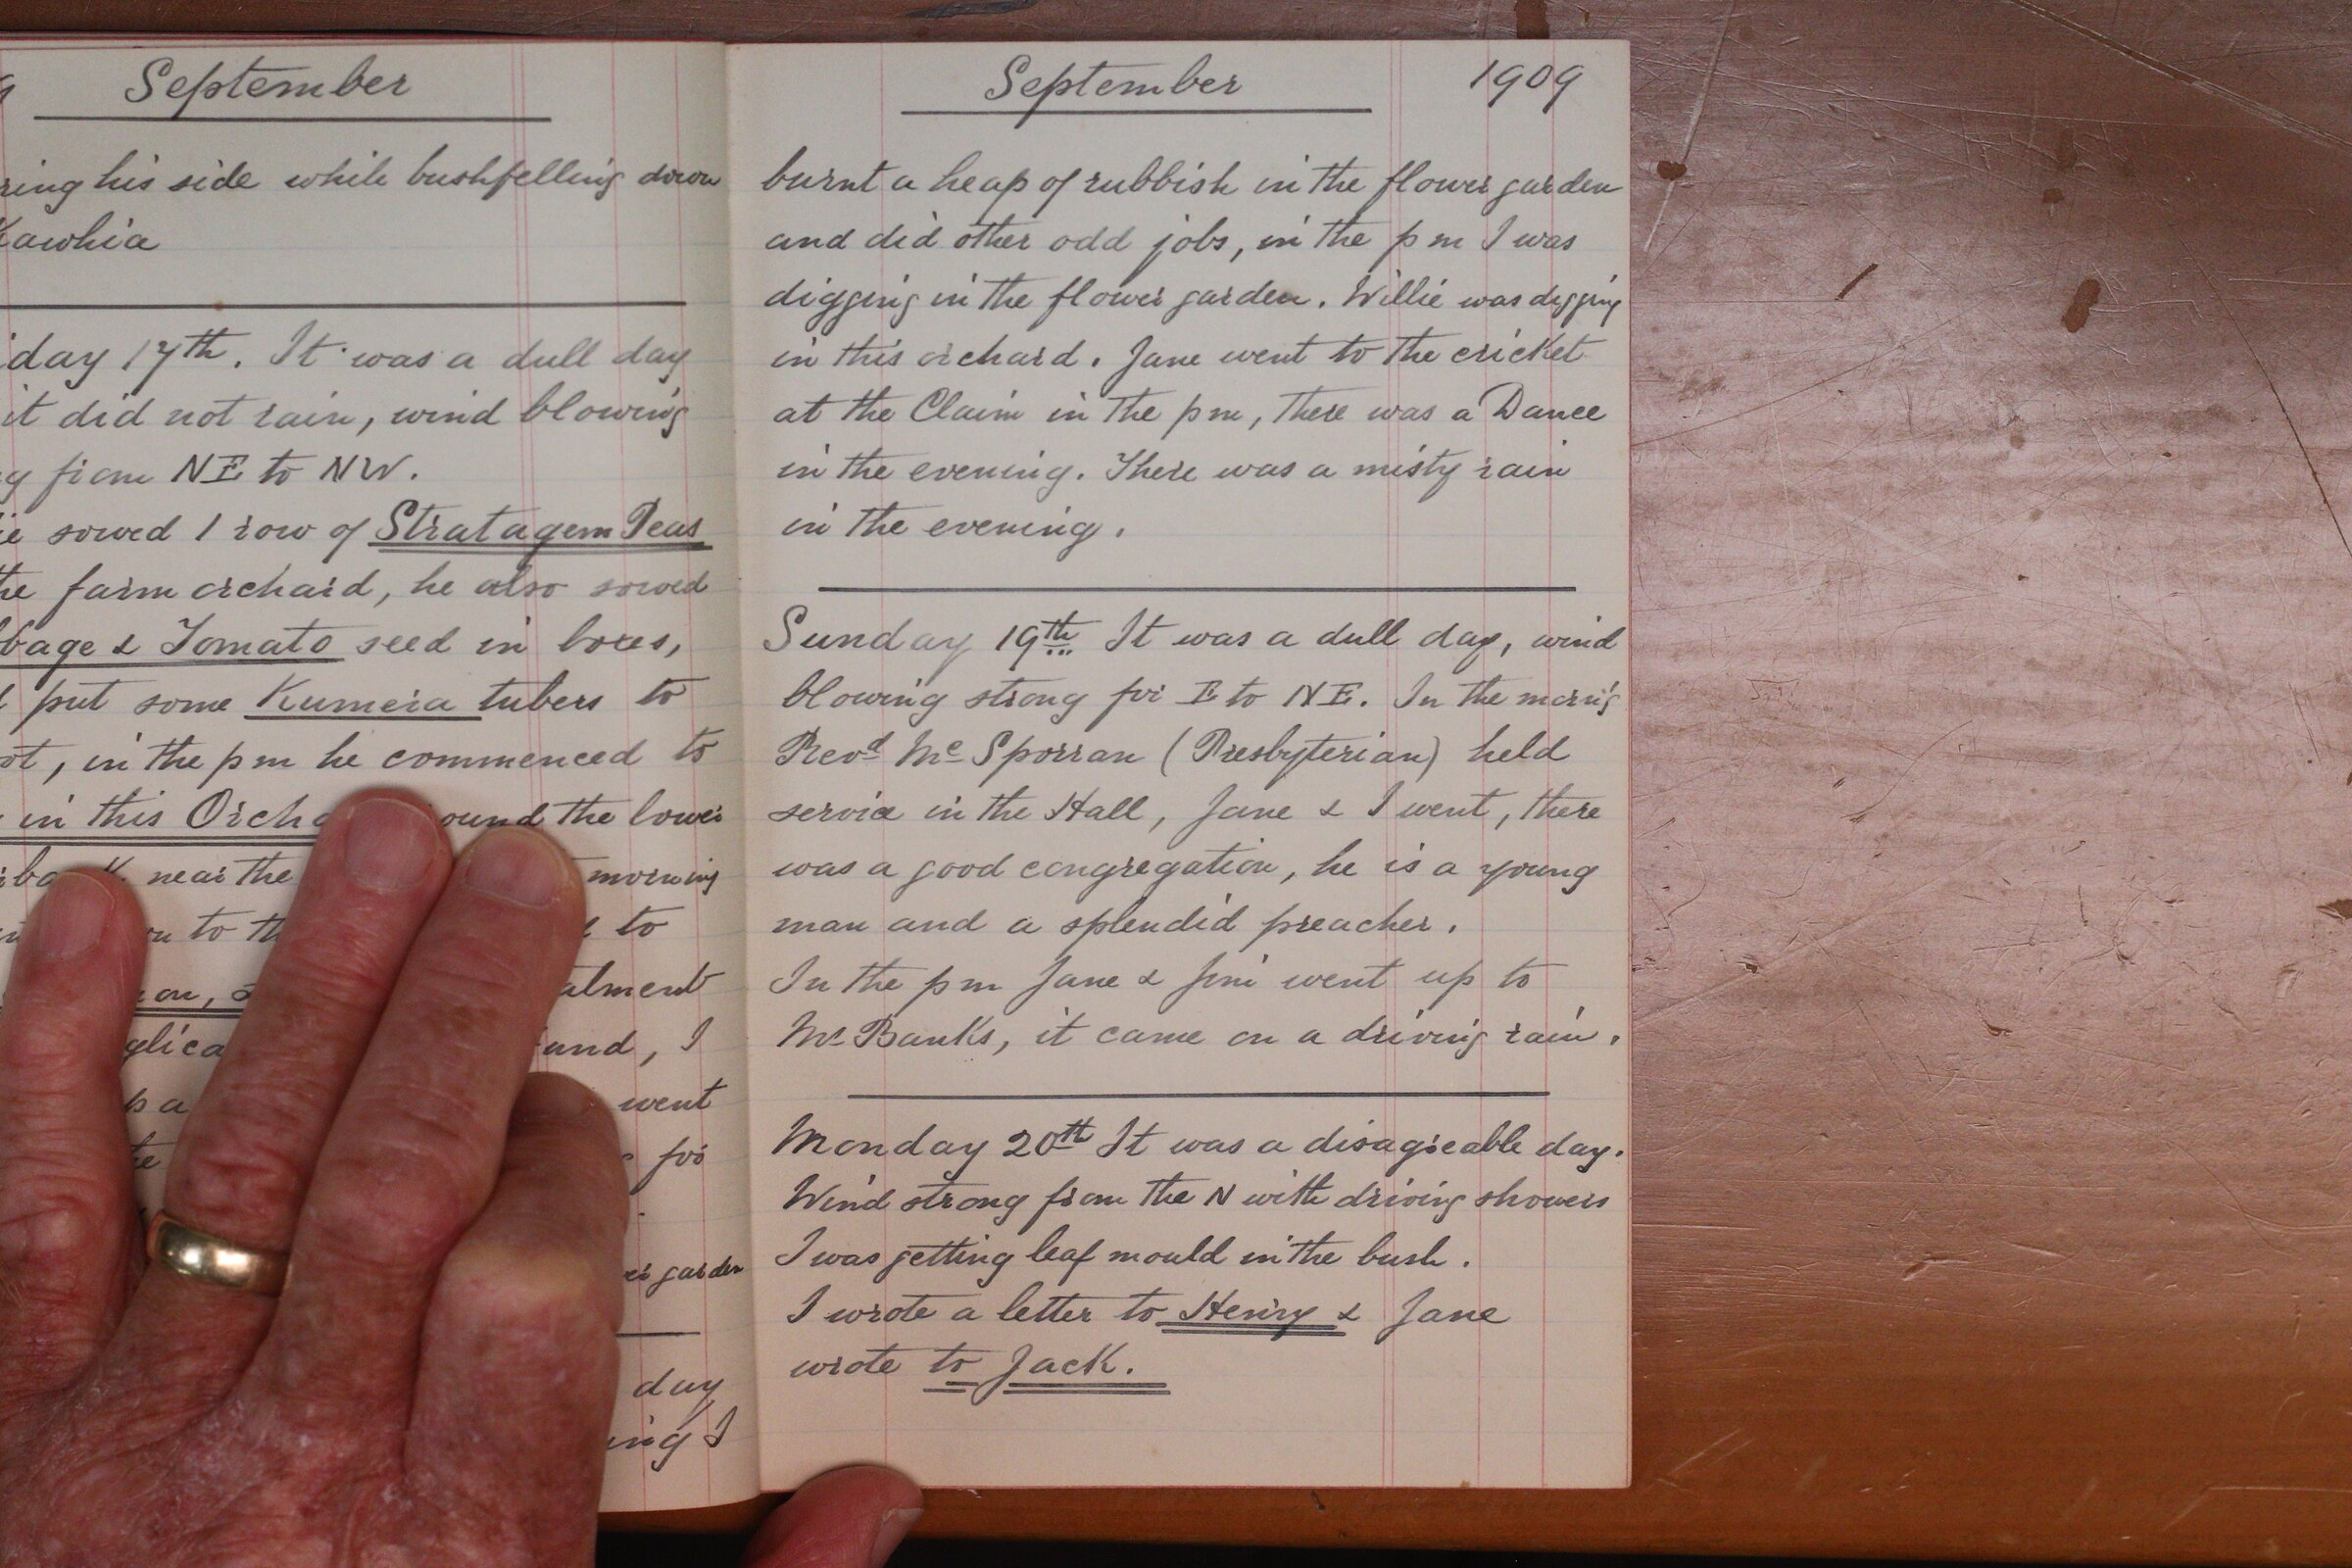 September
his side while bushfelling down
Kawhia
day 17th. It was a dull day
it did not rain, wind blowing
from NE to NW.
sowed 1 row of Stratagem Peas
farm orchard, he also sowed
& Tomato seed in boxes,
put some Kumera tubers to
, in the pm he commenced to
in this the lower
near the morning
to to
on,
and, I
went
for
garden
day
I
September 1909
burnt a heap of rubbish in the flower garden
and did other odd jobs, in the pm I was
digging in the flower garden. Willie was digging
in this orchard. Jane went to the cricket
at the Claim in the pm, there was a Dance
in the evening. There was a misty rain
in the evening.
Sunday 19th It was a dull day, wind
blowing strong for E to NE. In the morn'g
Revd Mc Sporran (Presbyterian) held
service in the Hall, Jane & I went, there
was a good congregation, he is a young
man and a splendid preacher.
In the pm Jane & Jim went up to
Mr Banks, it came on a driving rain.
Monday 20th It was a disagreeable day.
Wind strong from the N with driving showers
I was getting leaf mould in the bush.
I wrote a letter to Henry & Jane
wrote to Jack.